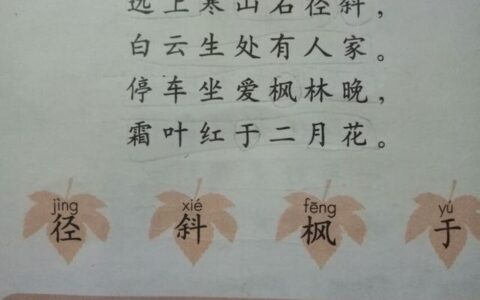 远上寒山石径斜，
白云生处有人家。
停车坐爱枫林晚，
霜叶红于二月花。
jìng xié fēng yú
径 斜 枫 于